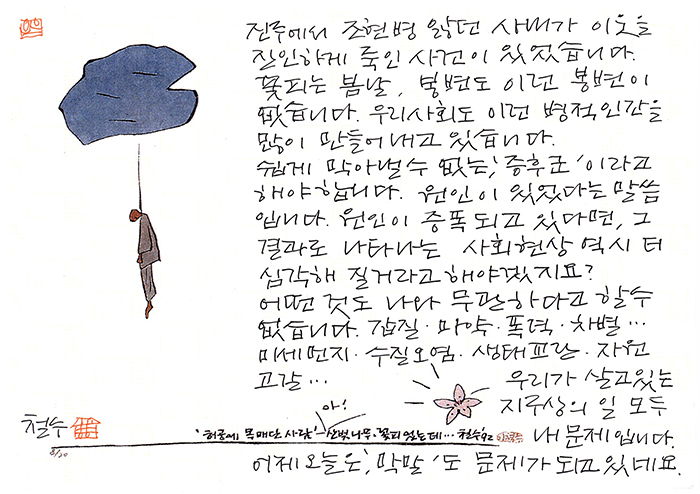 진주에서 조현병 앓던 사내가 이웃을
잔인하게 죽인 사건이 있었습니다.
꽃피는 봄날, 날변도 이런 봉변이
없습니다. 우리사회도 이런 병적인간을
많이 만들어내고 있습니다.
쉽게 막아낼수 없는, '증후군'이라고
해야합니다. 원인이 있었다는 말씀
입니다. 원인이 증폭되고 있다면, 그
결과로 나타나는 사회현상 역시 더
심각해 질거라고해야겠지요?
어떤 것도 나와 무관하다고 할수
없습니다. 갑질·마약·폭력·차별…
미세먼지·수질오염·생태교란·자원
고갈… 우리가 살고있는
지구상의 일 모두
내 문제입니다.
어제오늘은, '막말'도 문제가 되고있네요.
아!
'허공에 목매단 사람' – 산벚나무·꽃피었는데… 철수 '92
철수
8/20